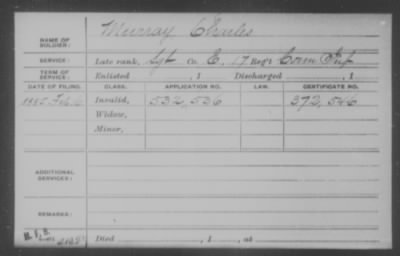 NAME OF SOLDIER: Murray Charles
SERVICE: Late rank, Sgt Co. E, 17 Reg't Conn Inf
TERM OF SERVICE: Enlisted , 1 Discharged , 1
DATE OF FILING. CLASS. APPLICATION NO. LAW. CERTIFICATE NO.
1885 Feb Invalid, 532,536 372,546
Widow,
Minor,
ADDITIONAL SERVICES:
REMARKS:
Died , 1 , at